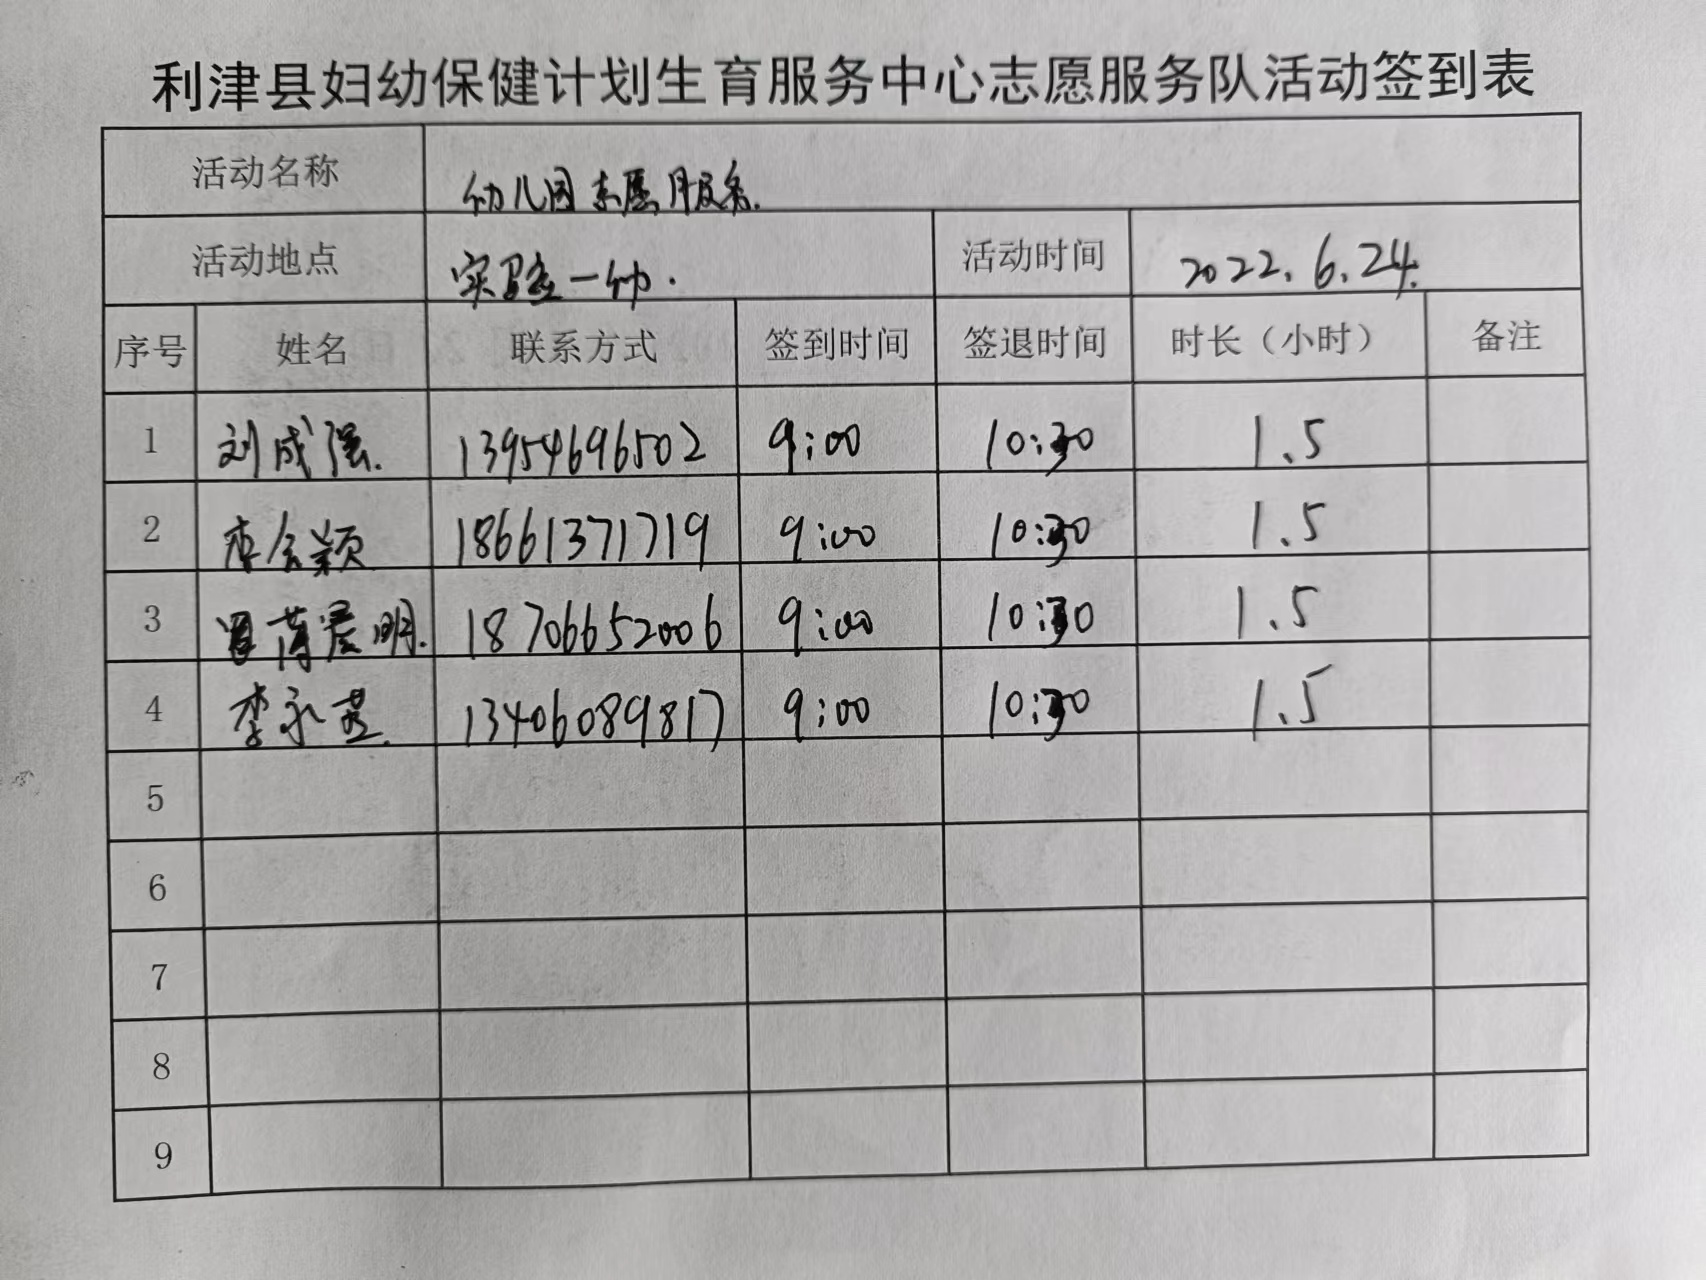 利津县妇幼保健计划生育服务中心志愿服务队活动签到表
活动名称 幼儿园志愿服务.
活动地点 实验一幼. 活动时间 2022.6.24.
序号 姓名 联系方式 签到时间 签退时间 时长（小时） 备注
1 刘成强. 13954696502 9:00 10:30 1.5
2 颖 18661371719 9:00 10:30 1.5
3 明. 18706652006 9:00 10:30 1.5
4 李永英. 13406089817 9:00 10:30 1.5
5
6
7
8
9